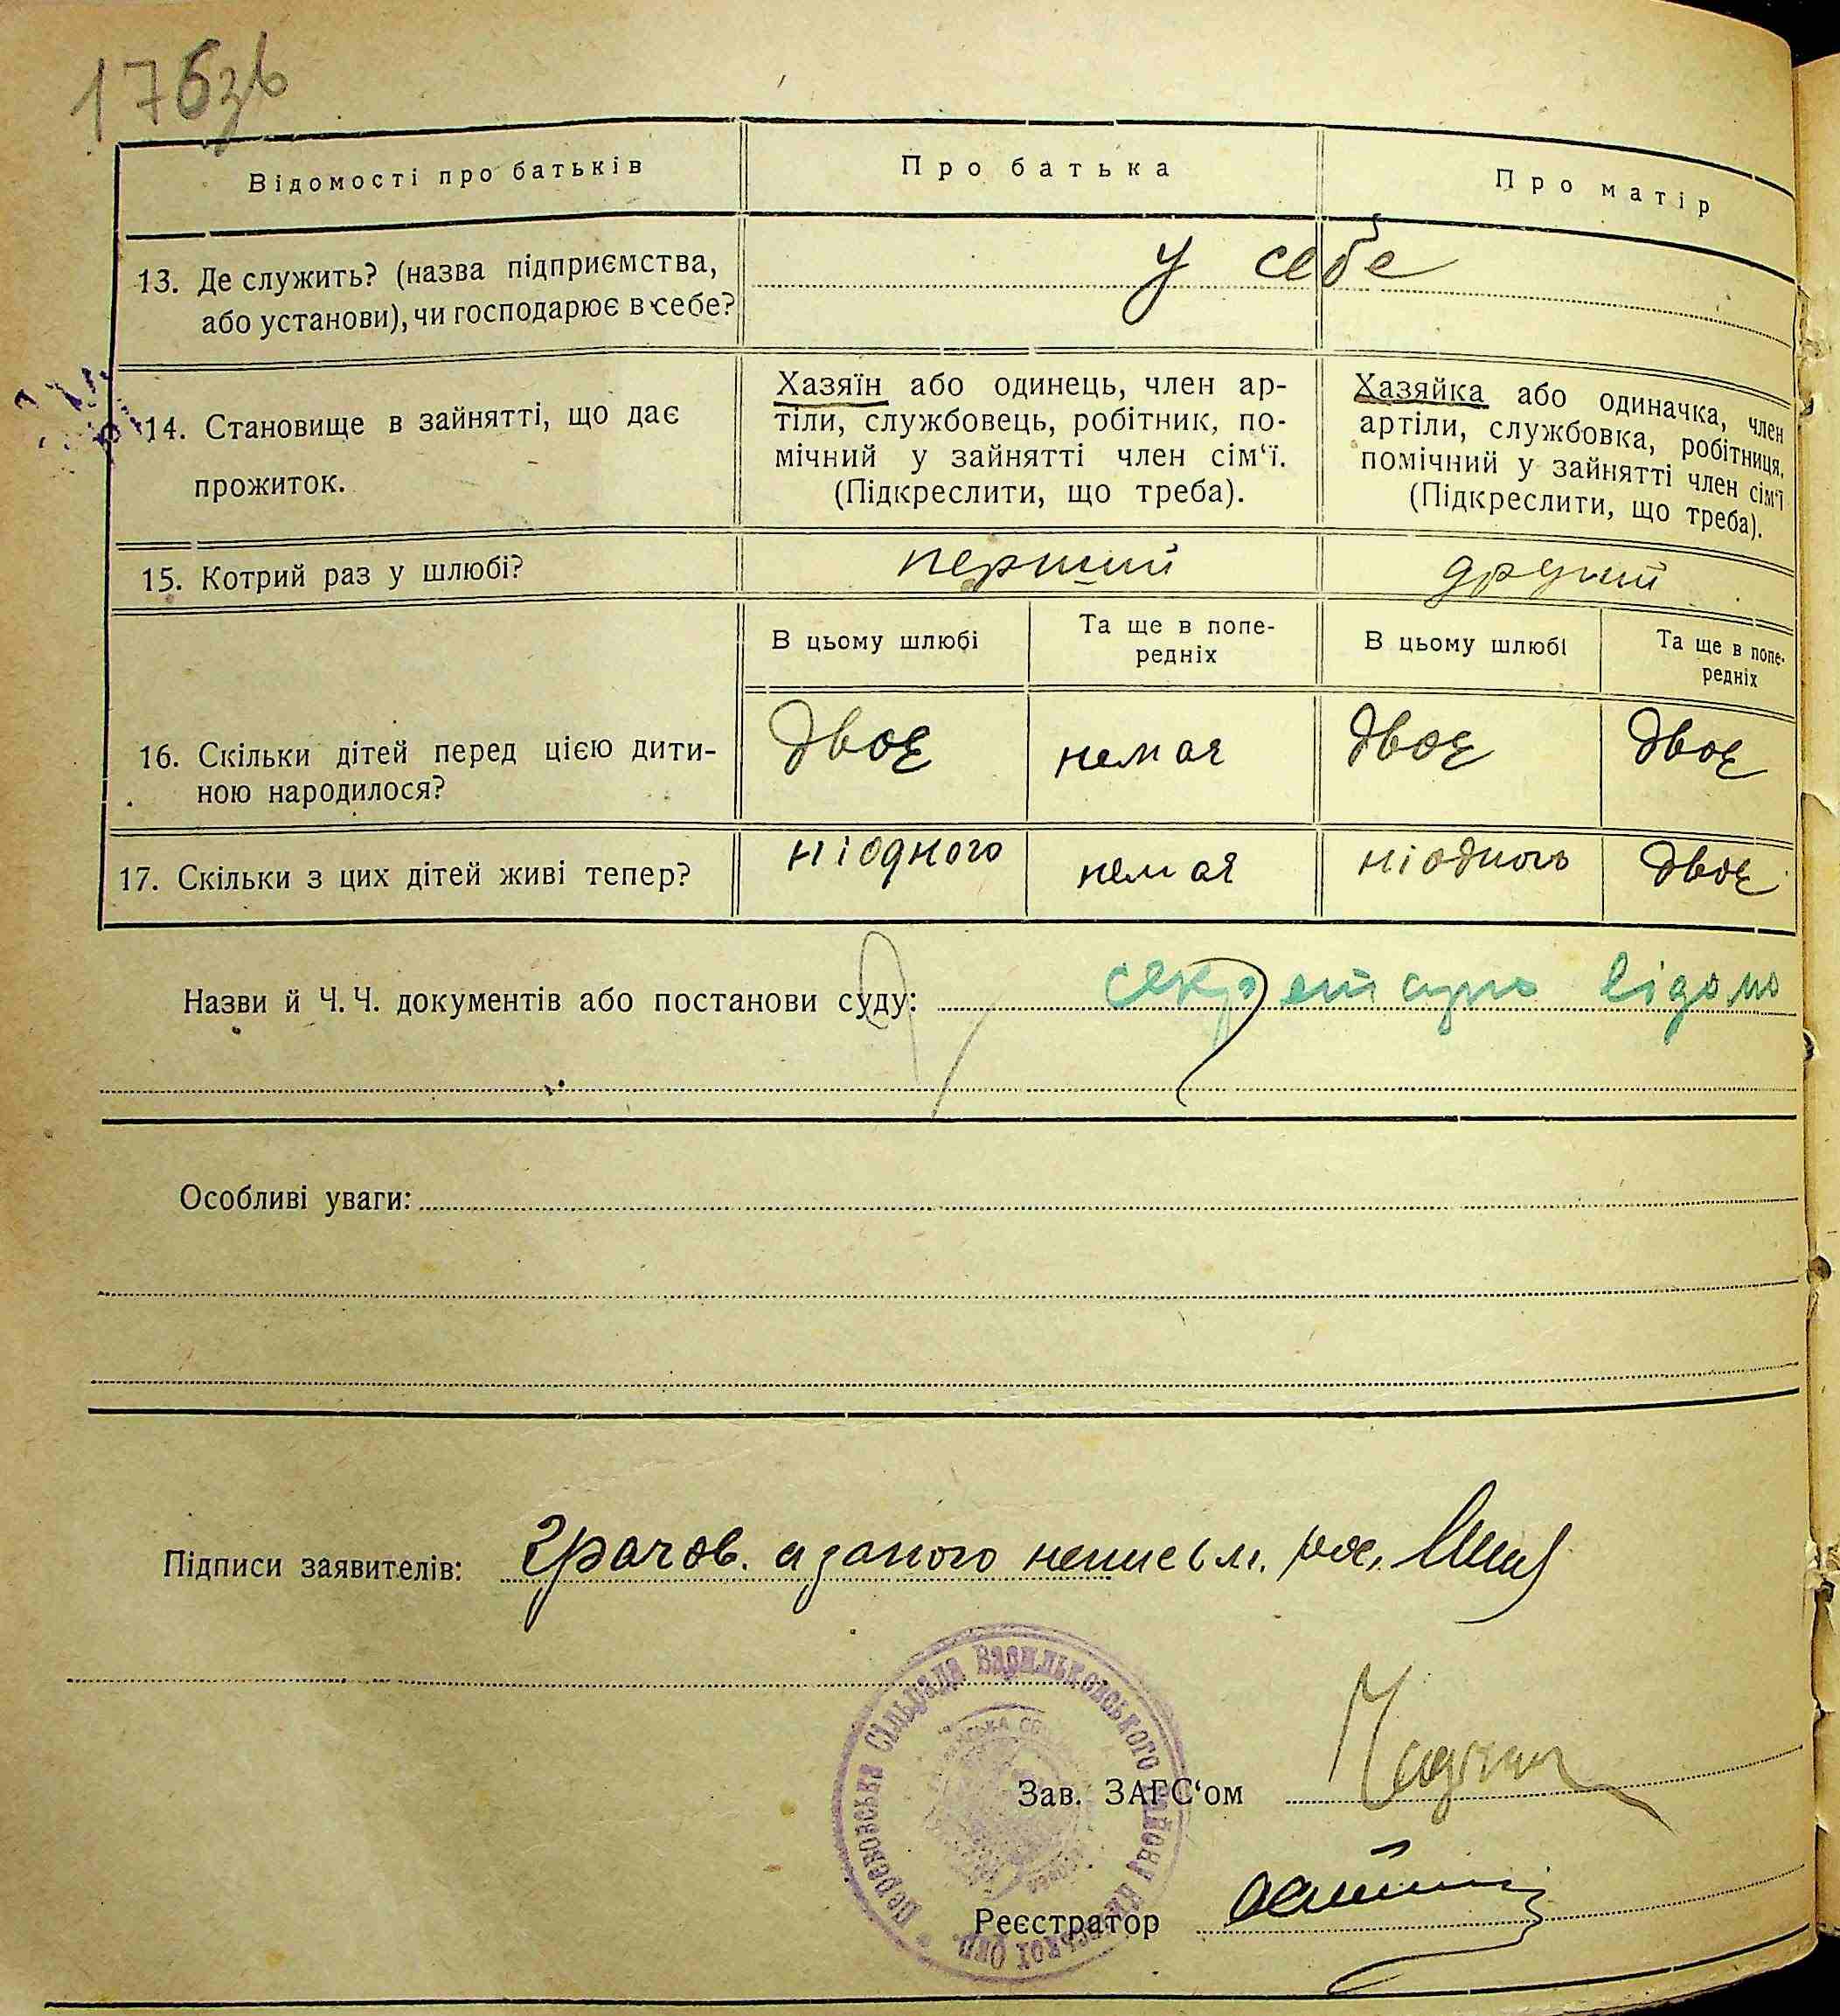 176зв
Відомості про батьків
Про батька
Про матір
13. Де служить? (назва підприємства,
або установи), чи господарює в себе?
у себе
14. Становище в зайнятті, що дає
прожиток.
Хазяїн або одинець, член ар-
тіли, службовець, робітник, по-
мічний у зайнятті член сім‘ї.
(Підкреслити, що треба).
Хазяйка або одиначка, член
артіли, службовка, робітниця,
помічний у зайнятті член сім‘ї
(Підкреслити, що треба).
15. Котрий раз у шлюбі?
перший
другий
В цьому шлюбі
Та ще в попе-
редніх
В цьому шлюбі
Та ще в попе-
редніх
16. Скільки дітей перед цією дити-
ною народилося?
двоє
немає
двоє
двоє
17. Скільки з цих дітей живі тепер?
ніодного
немає
ніодного
двоє
Назви й Ч. Ч. документів або постанови суду: секретарю відомо
Особливі уваги:
Підписи заявителів: неписьм.
Сільрада Васильковського району
Зав. ЗАГС‘ом
Реєстратор